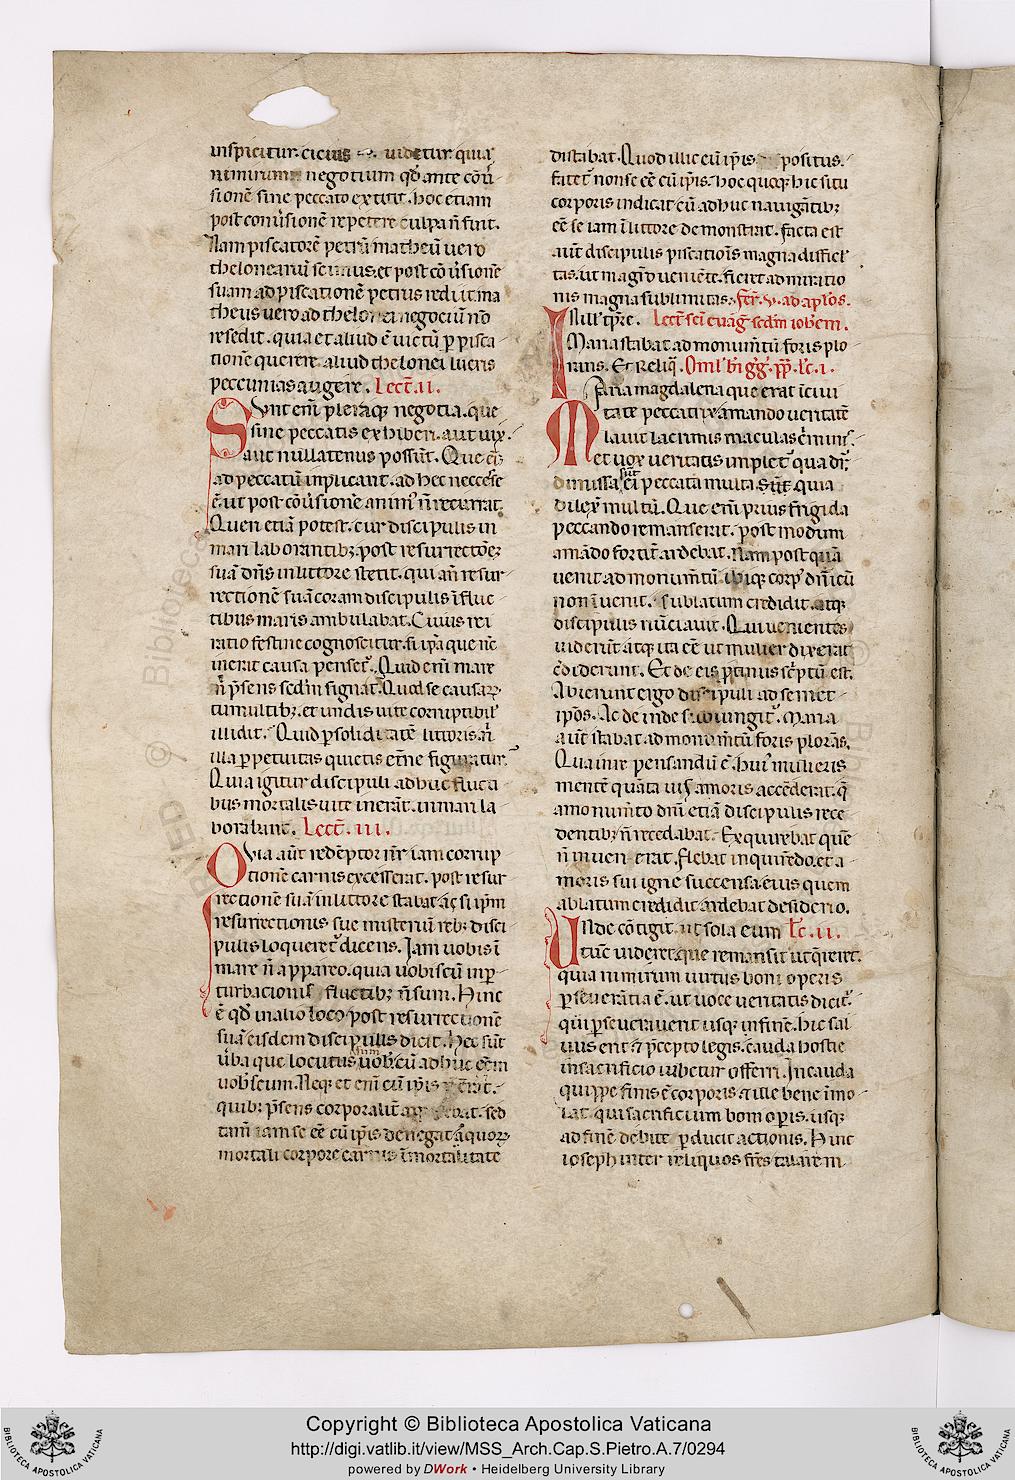 inspicitur. cicius uidetur quia
nimirum negotium qđ ante cōū
sionē sine peccato extitit. hoc etiam
post conūsionē repetere culpa ñ fuit.
Nam piscatorē petrū matheū uero
thelonearuī scimus. et post cōūsionē
suam ad piscationē petrus rediit. ma
theus uero ad thelonei negociū nō
resedit. quia et aliud ē uictū p pisca
tionē querere. aliud thelonei lucris
peccunias augere. Lect̄. II.
Sunt eni pleraq; negotia. que
sine peccatis exhiberi aut uix.
aut nullatenus possūt. Que
ad peccatū inplicant. ad hec neccesse
ē. ut post cōūsionē anim' ñ recurrat.
Queri etiā potest. cur discipulis in
mari laborantib; post resurrectōē;
suā dn̄s in littore stetit. qui an̄ resur
rectionē suā coram discipulis ī fluc
tibus maris ambulabat. Cuius rei
ratio festine cognoscitur. si ipa que
inerit causa penset̄. Quid eni mare
n̄ p̄sens sedm signat. Quod se causaꝝ
tumultib; et undis uite corruptibil'
illidit. Quid p solidi tatē littoris. n̄
illa ppetuitas quietis et̄ne figuratur.
Quia igitur discipuli adhuc fluctia
bus mortalis uite inerāt. in mari la
borabant. Lect̄. III.
Quia aūt redēptor nr̄ iam corrup
tionē carnis excesserat. post resur
rectionē suā in littore stabat ac si ipm
resurrectionis sue misteriū reb; disci
pulis loqueret̄ dicens. Iam uobis ī
mare ñ appareo. quia uobiscū in p
turbacionis fluctib; ñ sum. Hinc
ē qđ in alio loco post resurrectionē
suā eisdem discipulis dicit. Hec sūt
ūba que locutus sum ad uos. cū adhuc eēm
uobiscum. Neq; et eni cū ipis ñ erat.
quib; p̄sens corporalit̄ apparebat. sed
tam̄ iam se eē cū ipis denegat. a quoꝝ
mortali corpore carnis īmortalitate
distabat. Quod illic cū ipis positus.
fatet̄ non se eē cū ipis. hoc quoq; hic situ
corporis indicat. cū adhuc nauigātib;
eē se iam ī littore demonstrat. facta est
aūt discipulis piscatiōis magna difficl'
tas. ut magr̄o ueniēte. fieret admiratio
nis magna sublimitas. fer̄. v. ad aplōs.
In ill' tp̄re. Lect̄ sci euāḡ sedm ioh̄em.
Maria stabat ad monumt̄ū foris plo
rans. Et Reliq̄. Oml' bt̄i g̓g̓. pp̄. lc̄. i.
Maria magdalena que erat ī ciui
tate peccatrix amando ueritatē
lauit lacrimis maculas c̄minis.
et uox ueritatis implet̄ qua dr̄;
dimissa sūt ei peccata multa. quia
dilex̄ multū. Que eni prius frigida
peccando remanserat. post modum
amādo fortit̄ ardebat. Nam post quā
uenit ad monumt̄ū ibiq; corp' dn̄icū
non īuenit. sublatum credidit. atq;
discipulis nūciauit. Qui uenientes
uiderūt. atq; ita eē ut mulier dixerat
c̄diderunt. Et de eis p̄tinus sc̄ptū est.
Abierunt ergo discipuli ad semet
ip̄os. Ac deinde subiungit̄. Maria
aūt stabat ad monumt̄ū foris ploras.
Qua in re pensandū ē. hui' mulieris
mentē quāta uis amoris accēderat. q̄
a monumto dn̄i. etiā discipulis rece
dentib; ñ recedabat. Exquirebat quē
ñ inuenerat. flebat inquirēdo. et a
moris sui igne succensa. eius quem
ablatum credidit ardebat desiderio.
Unde cōtigit. ut sola eum Lc̄. II.
tūc uideret. que remansit ut q̄ireret.
quia nimirum uirtus boni operis
pseuerātia ē. ut uoce ueritatis dicit̄.
qui pseuerauerit usq; in finē. hic sal
uus erit. & p̄cepto legis. cauda hostie
in sacrificio iubetur offerri. In cauda
quippe finis ē corporis. & ille bene īmo
lat. qui sacrificium boni op̄is. usq;
ad finē debite pducit actionis. Hinc
ioseph inter reliquos fr̄es talarem
Copyright © Biblioteca Apostolica Vaticana
http://digi.vatlib.it/view/MSS_Arch.Cap.S.Pietro.A.7/0294
powered by DWork • Heidelberg University Library
BIBLIOTECA APOSTOLICA VATICANA
BIBLIOTECA APOSTOLICA VATICANA